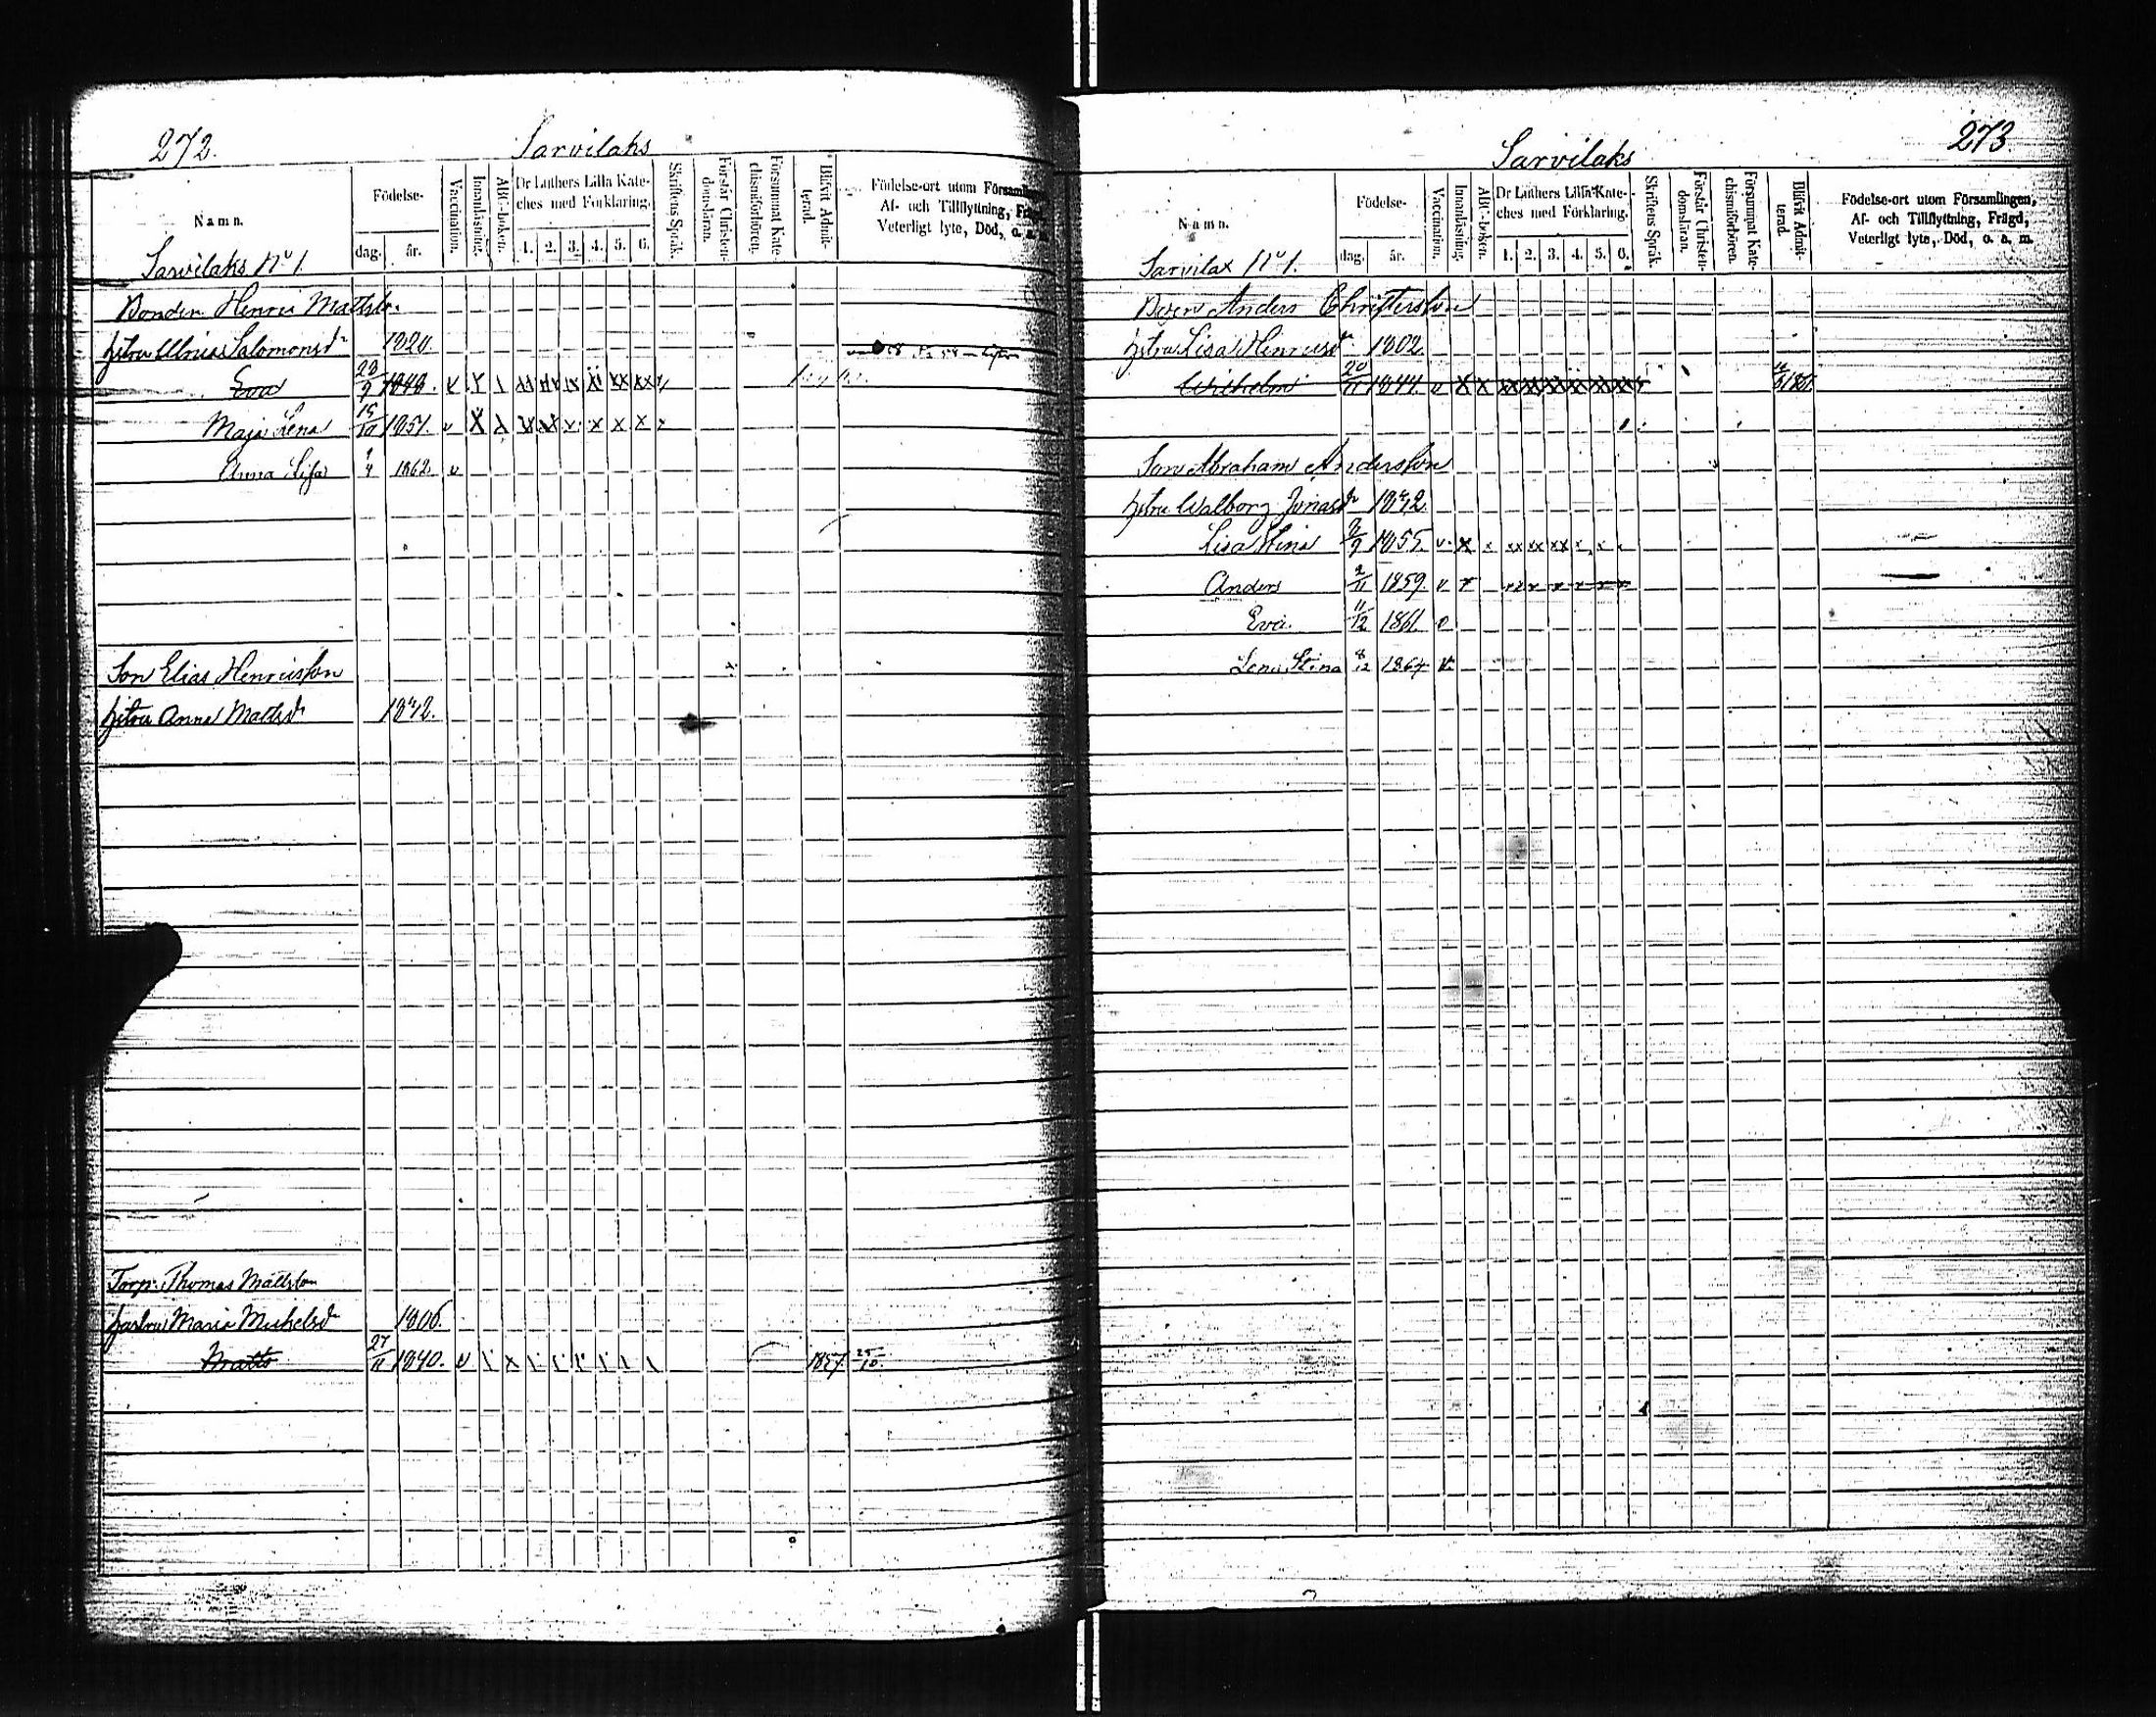 272.
Sarvilaks
Namn.
Födelse-
dag. år.
Vaccination.
Innanläsning.
ABC-boken.
Dr Luthers Lilla Kate-
ches med Förklaring.
1. 2. 3. 4. 5. 6.
Skriftens Språk.
Förstår Christen-
domsläran.
Försummat Kate-
chismiförhören.
Blifvit Admit-
terad.
Födelse-ort utom Församlingen,
Af- och Tillflyttning, Frägd,
Veterligt lyte, Död, o. a. m.
Sarvilaks No 1.
Bonden Henric Mattsson
hstru Ulrica Salomonsdr 1820.
Eva 28/9 1848. v
Maja Lena 15/10 1851. v x x x x x
Anna Lisa 1/4 1862. v
Son Elias Henricsson
hstru Anna Mattsdr 1842.
Torp. Thomas Mattsson
hustru Maria Michelsdr 1806.
Matts 27/11 1840. v 1857 25/10.
273.
Sarvilaks
Namn.
Födelse-
dag. år.
Vaccination.
Innanläsning.
ABC-boken.
Dr Luthers Lilla Kate-
ches med Förklaring.
1. 2. 3. 4. 5. 6.
Skriftens Språk.
Förstår Christen-
domsläran.
Försummat Kate-
chismiförhören.
Blifvit Admit-
terad.
Födelse-ort utom Församlingen,
Af- och Tillflyttning, Frägd,
Veterligt lyte, Död, o. a. m.
Sarvilax No 1.
Anders Christersson
hstru Lisa Henricsdr 1802.
Wilhelm 20/11 1844. v x x xx xx xx xx xx xx
Son Abraham Andersson
hstru Walborg Jonasdr 1832.
Lisa Stina 1855. v x x xx xx xx x x
Anders 2/11 1859. v x x x x x x x
Eva 11/12 1861. v
Lena Stina 8/12 1864 v